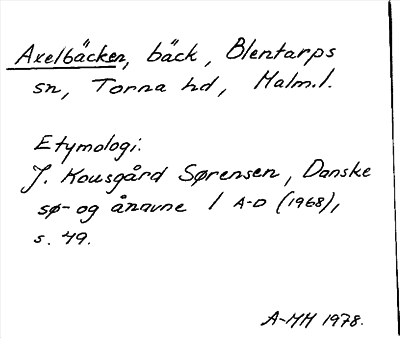 Axelbäcken, bäck, Blentarps
sn, Torna hd, Malm.l.
Etymologi:
J. Kousgård Sørensen, Danske
sø- og ånavne I A-D (1968),
s. 49.
A-MH 1978.